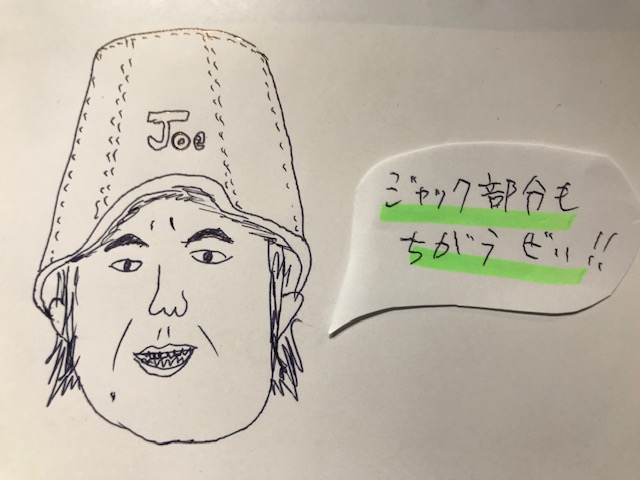 Joe
ジャック部分も
ちがうぜぃ!!